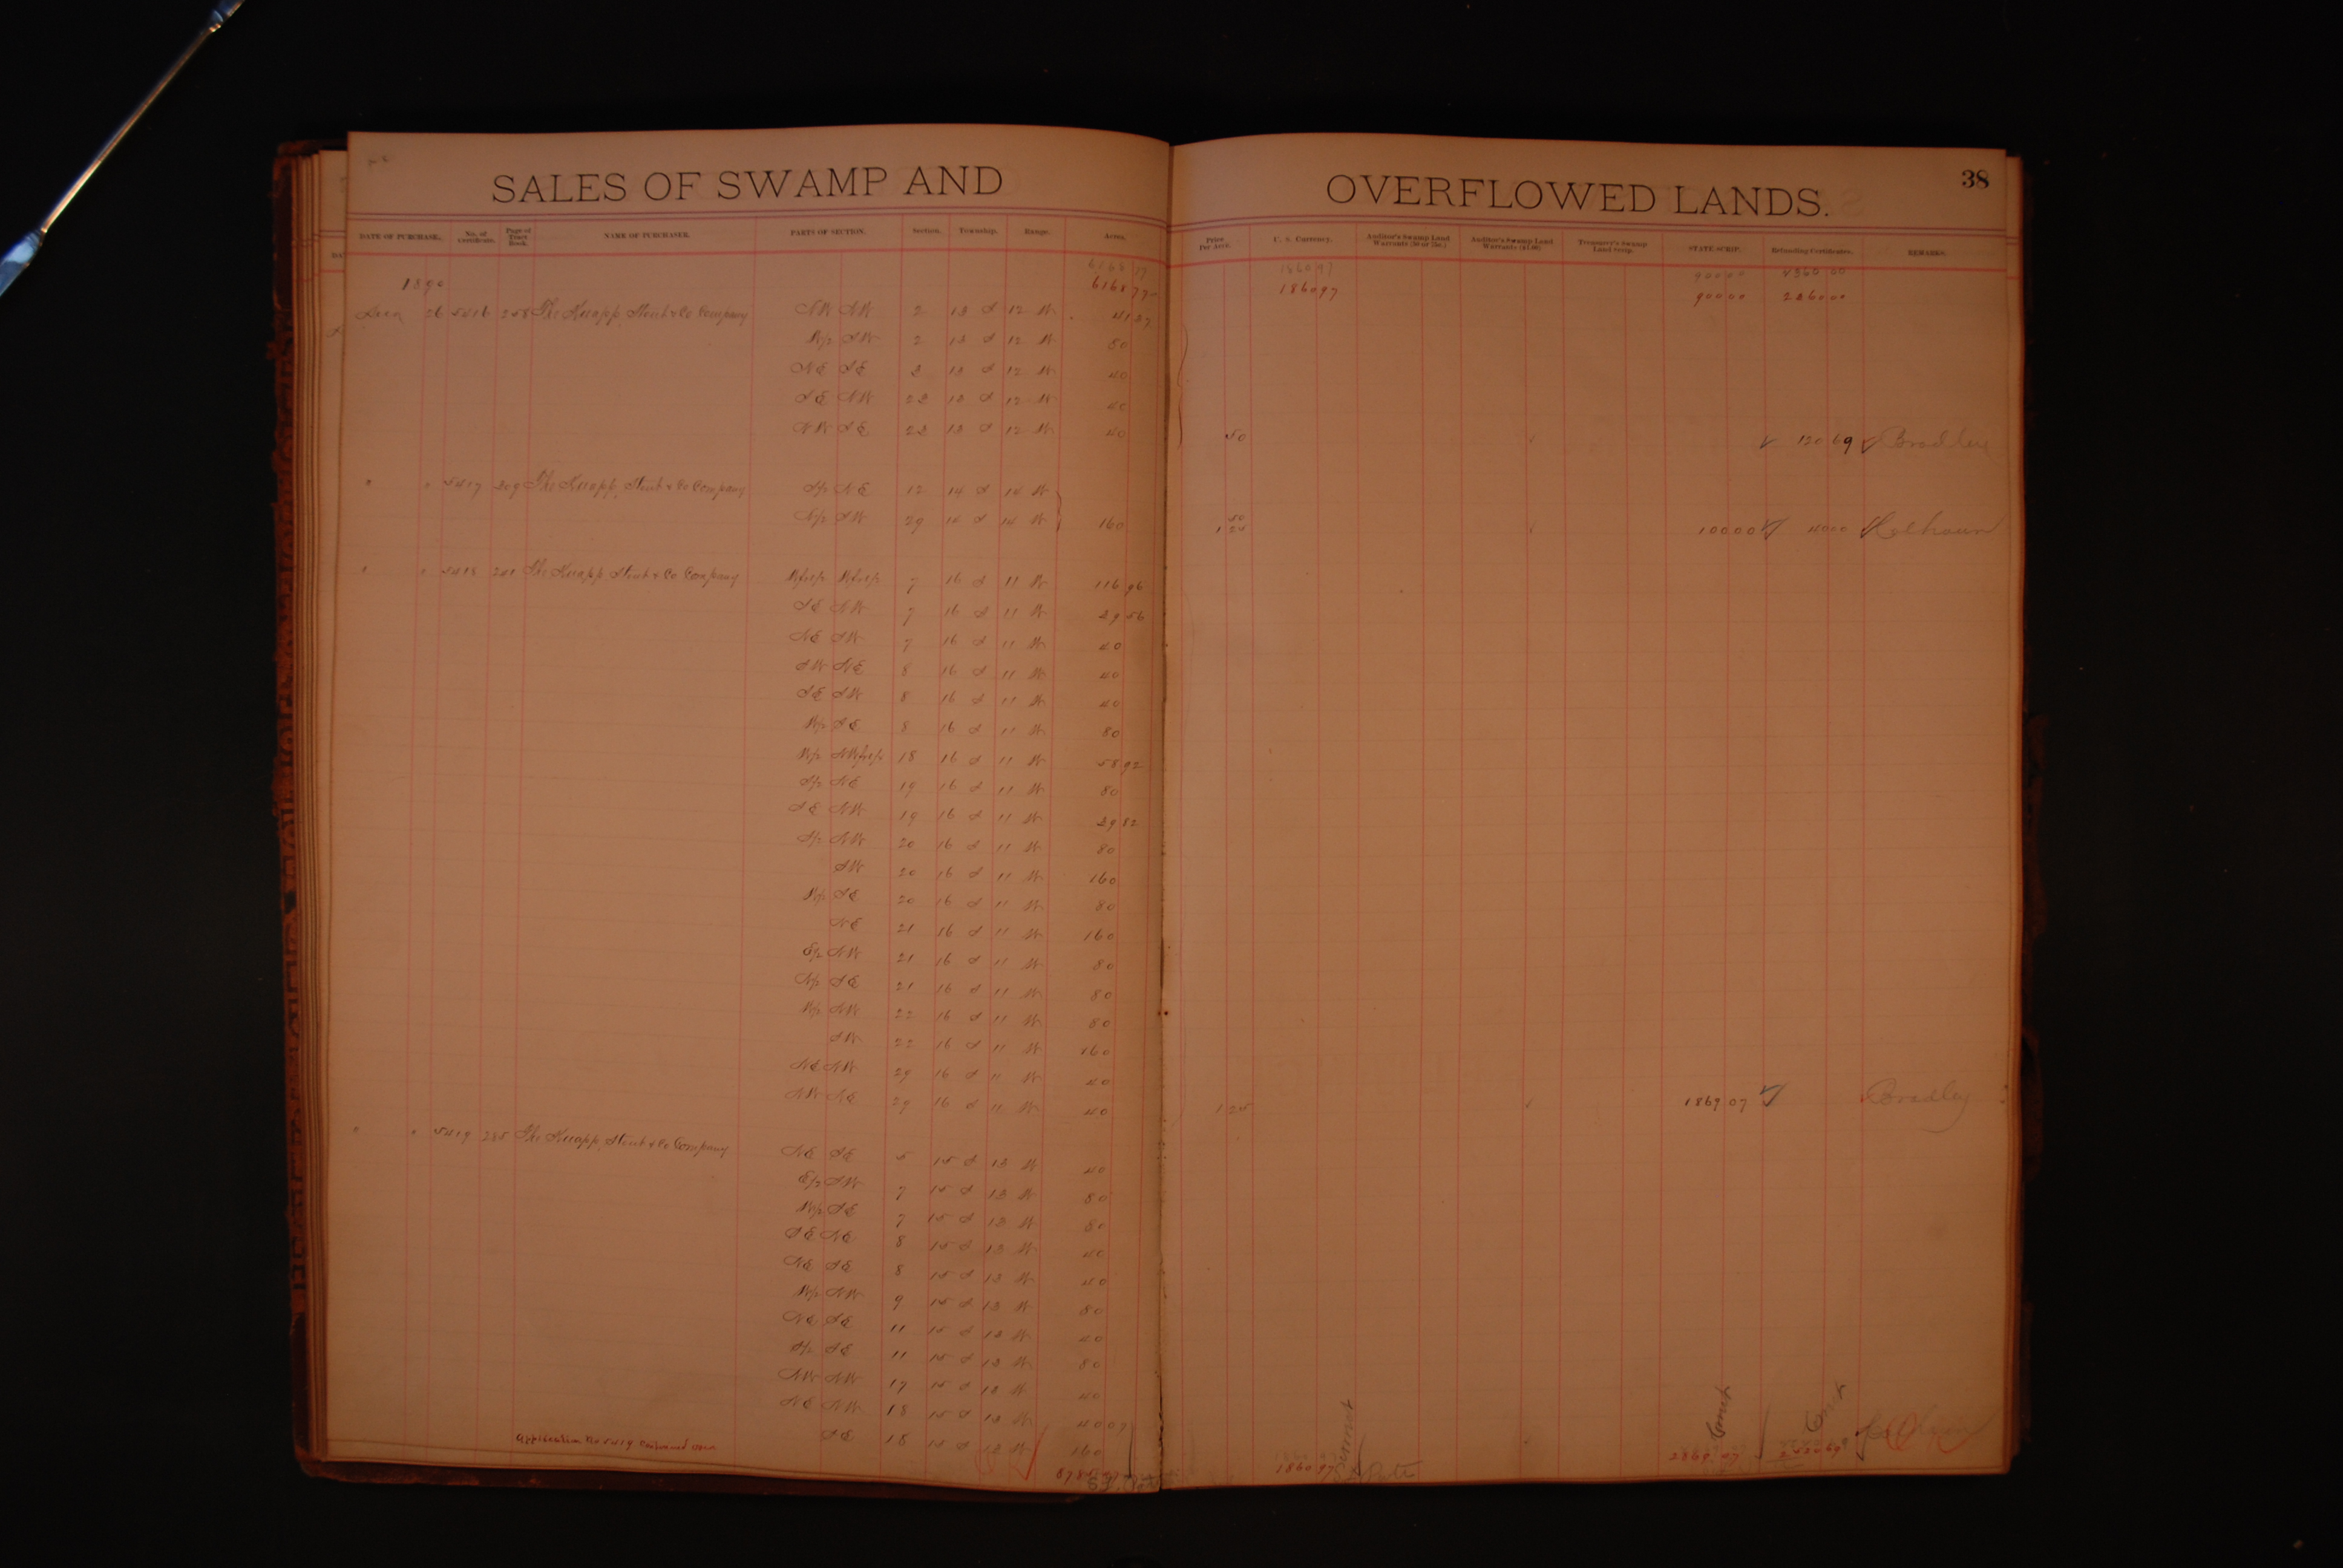 SALES OF SWAMP AND OVERFLOWED LANDS. 38
DATE OF PURCHASE. No. of Certificate. Page of Tract Book. NAME OF PURCHASER. PARTS OF SECTION. Section. Township. Range. Acres. Price Per Acre. U. S. Currency. Auditor's Swamp Land Warrants (50 or 75c.) Auditor's Swamp Land Warrants ($1.00) Treasurer's Swamp Land Scrip. STATE SCRIP. Refunding Certificates. REMARKS.
1890 6168 77 1860 97 900 00
26 5416 The Knapp, Stout & Co Company NW NW 2 13 S 12 W 41 37
W/2 SW 2 13 S 12 W 80
NE SE 3 13 S 12 W 40
SE NW 23 13 S 12 W 40
NW SE 23 13 S 12 W 40 50 120 69 Bradley
" " 5417 309 The Knapp, Stout & Co Company S/2 NE 12 14 S 14 W
N/2 SW 29 14 S 14 W 160 50 1 25 100 00 40 00 Calhoun
" " 5418 241 The Knapp, Stout & Co Company Wfrl/2 Wfrl/2 7 16 S 11 W 116 96
SE NW 7 16 S 11 W 39 56
NE SW 7 16 S 11 W 40
SW NE 8 16 S 11 W 40
SE SW 8 16 S 11 W 40
W/2 SE 8 16 S 11 W 80
W/2 NWfrl/4 18 16 S 11 W 58 92
S/2 NE 19 16 S 11 W 80
SE NW 19 16 S 11 W 39 82
S/2 NW 20 16 S 11 W 80
SW 20 16 S 11 W 160
W/2 SE 20 16 S 11 W 80
NE 21 16 S 11 W 160
E/2 NW 21 16 S 11 W 80
N/2 SE 21 16 S 11 W 80
W/2 NW 22 16 S 11 W 80
SW 22 16 S 11 W 160
NE NW 29 16 S 11 W 40
NW NE 29 16 S 11 W 40 1 25 1869 07 Bradley
" " 5419 285 The Knapp, Stout & Co Company NE SE 5 15 S 13 W 40
E/2 SW 7 15 S 13 W 80
W/2 SE 7 15 S 13 W 80
SE NE 8 15 S 13 W 40
NE SE 8 15 S 13 W 40
W/2 NW 9 15 S 13 W 80
NE SE 11 15 S 13 W 40
S/2 SE 11 15 S 13 W 80
NW NW 17 15 S 13 W 40
NE NW 18 15 S 13 W 40 07
SE 18 15 S 13 W 160
Application No 5419 continued over 1860 97 2869 07